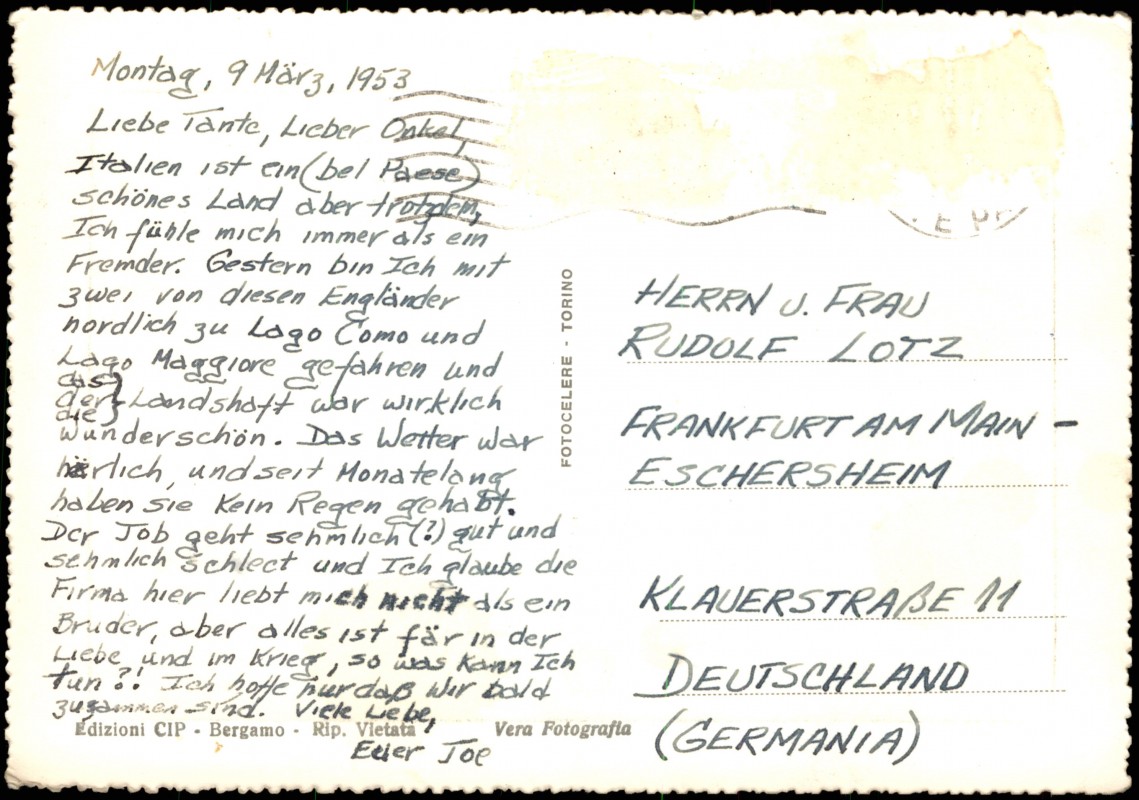 Montag, 9 März, 1953
Liebe Tante, Lieber Onkel,
Italien ist ein (bel Paese)
schönes Land aber trotzdem,
Ich fühle mich immer als ein
Fremder. Gestern bin Ich mit
zwei von diesen Engländer
nordlich zu Lago Como und
Lago Maggiore gefahren und
das
der Landshaft war wirklich
die
wunderschön. Das Wetter war
herlich, und seit Monatelang
haben sie Kein Regen gehabt.
Der Job geht sehmlich (?) gut und
sehmlich schlect und Ich glaube die
Firma hier liebt mich nicht als ein
Bruder, aber alles ist fär in der
Liebe und im Krieg, so was Kann Ich
tun?! Ich hoffe nur daß wir bald
zusammen sind. Viele Liebe,
Euer Joe
Edizioni CIP - Bergamo - Rip. Vietata
Vera Fotografia
FOTOCELERE - TORINO
HERRN U. FRAU
RUDOLF LOTZ
FRANKFURT AM MAIN -
ESCHERSHEIM
KLAUERSTRAßE 11
DEUTSCHLAND
(GERMANIA)